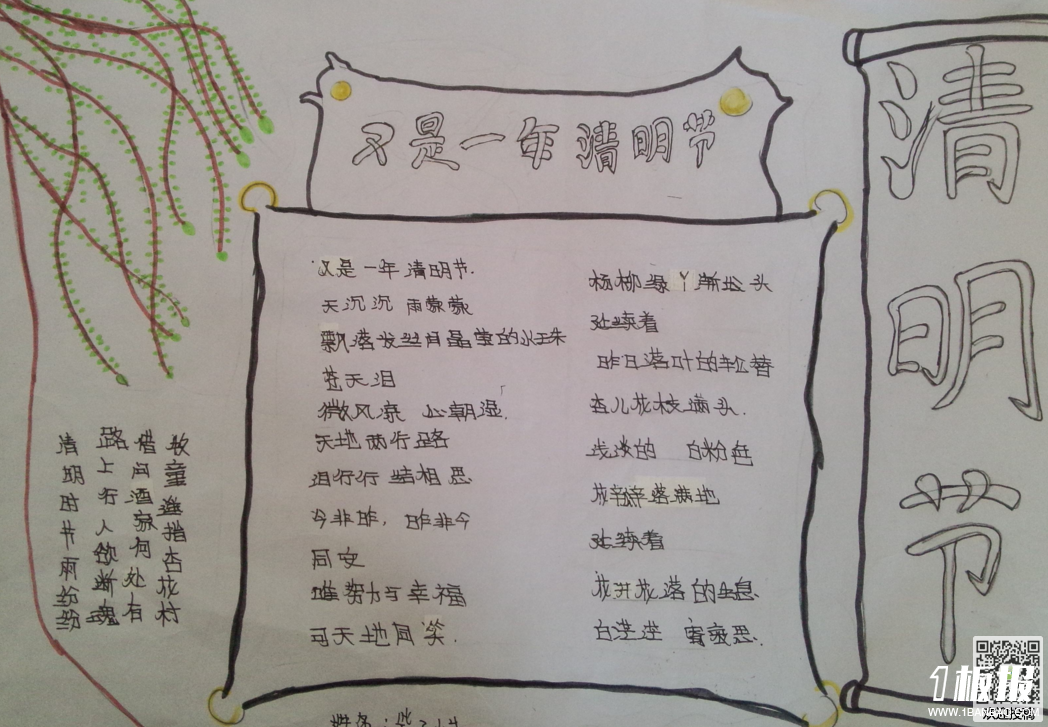 又是一年清明节
又是一年清明节.
天沉沉 雨蒙蒙
飘落发丝月晶莹的水珠
苍天泪
微风凉 心潮湿.
天地两行路
泪行行 结相思
今非昨, 昨非今
同安
唯努力与幸福
可天地同笑.
杨柳绿 丫渐出头
延续着
昨日落叶的轮替
杏儿花枝满头.
浅淡的 白粉色
花瓣落满地
延续着
花开花落的生息.
白茫茫 寄哀思.
清明节
清明时节雨纷纷
路上行人欲断魂
借问酒家何处有
牧童遥指杏花村
1板报
WWW.1BANBAO.COM